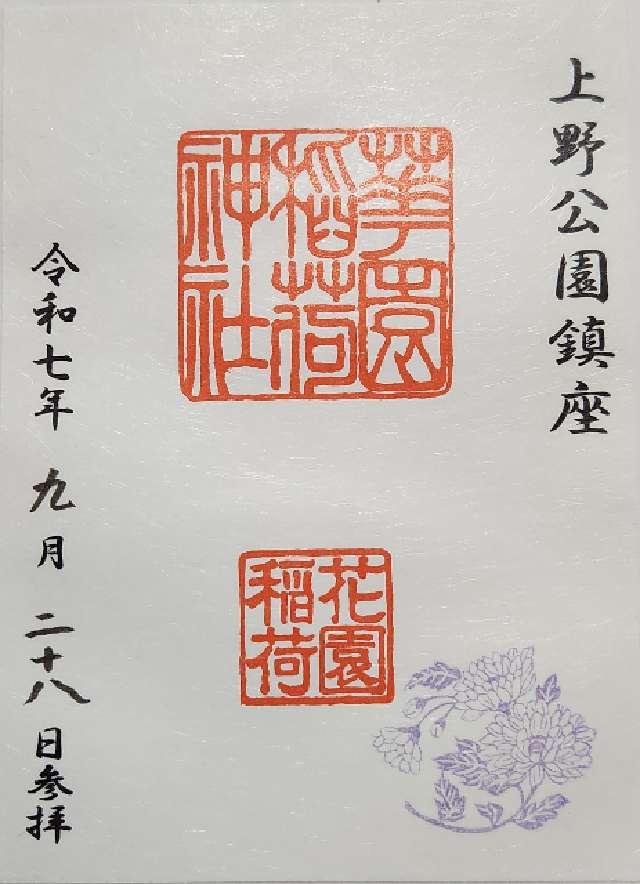 上野公園鎮座
華園
稲荷
神社
花園
稲荷
令和七年 九月 二十八日参拝